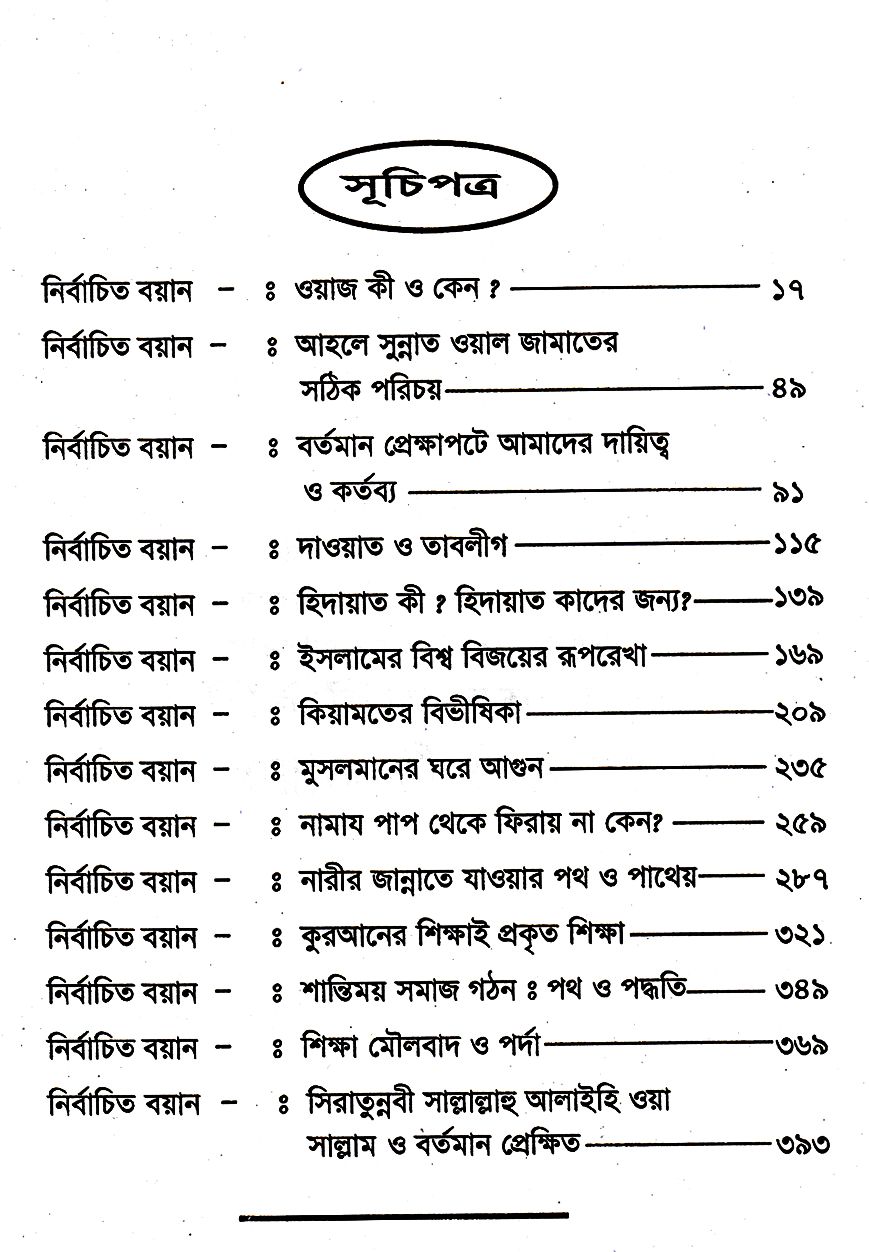 সূচিপত্র
নির্বাচিত বয়ান – ঃ ওয়াজ কী ও কেন ? ১৭
নির্বাচিত বয়ান – ঃ আহলে সুন্নাত ওয়াল জামাতের
সঠিক পরিচয় ৪৯
নির্বাচিত বয়ান – ঃ বর্তমান প্রেক্ষাপটে আমাদের দায়িত্ব
ও কর্তব্য ৯১
নির্বাচিত বয়ান – ঃ দাওয়াত ও তাবলীগ ১১৫
নির্বাচিত বয়ান – ঃ হিদায়াত কী ? হিদায়াত কাদের জন্য? ১৩৯
নির্বাচিত বয়ান – ঃ ইসলামের বিশ্ব বিজয়ের রূপরেখা ১৬৯
নির্বাচিত বয়ান – ঃ কিয়ামতের বিভীষিকা ২০৯
নির্বাচিত বয়ান – ঃ মুসলমানের ঘরে আগুন ২৩৫
নির্বাচিত বয়ান – ঃ নামায পাপ থেকে ফিরায় না কেন? ২৫৯
নির্বাচিত বয়ান – ঃ নারীর জান্নাতে যাওয়ার পথ ও পাথেয় ২৮৭
নির্বাচিত বয়ান – ঃ কুরআনের শিক্ষাই প্রকৃত শিক্ষা ৩২১
নির্বাচিত বয়ান – ঃ শান্তিময় সমাজ গঠন ঃ পথ ও পদ্ধতি ৩৪৯
নির্বাচিত বয়ান – ঃ শিক্ষা মৌলবাদ ও পর্দা ৩৬৯
নির্বাচিত বয়ান – ঃ সিরাতুন্নবী সাল্লাল্লাহু আলাইহি ওয়া
সাল্লাম ও বর্তমান প্রেক্ষিত ৩৯৩